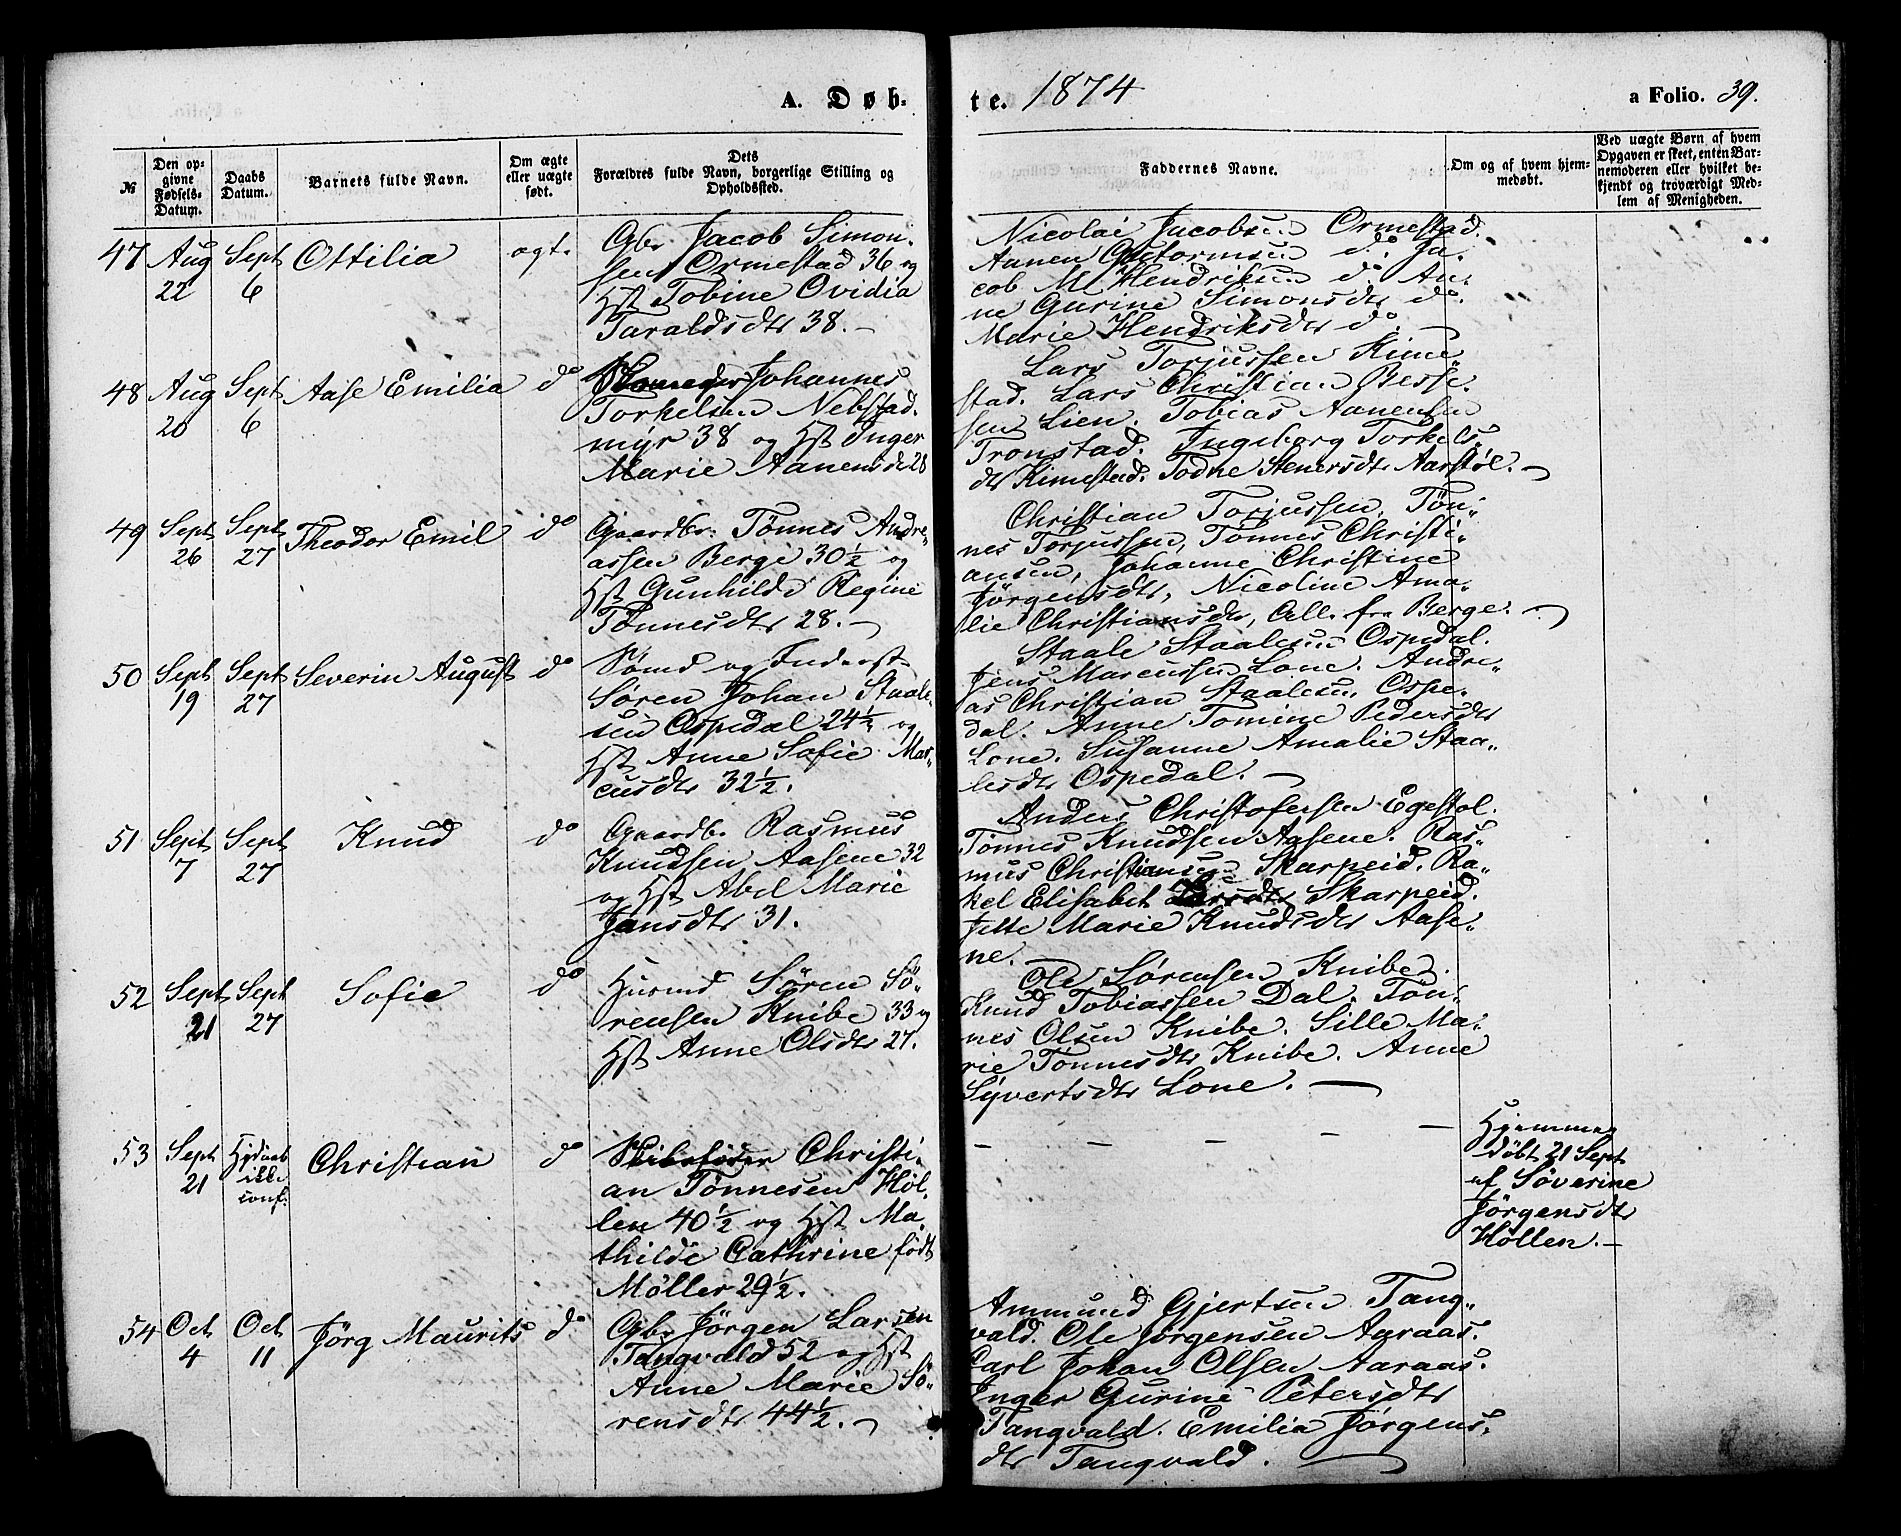 A. Døb-
te. 1874
a Folio. 39.
№
Den op-
givne
Fødsels-
Datum.
Daabs
Datum.
Barnets fulde Navn.
Om ægte
eller uægte
født.
Dets
Forældres fulde Navn, borgerlige Stilling og
Opholdssted.
Faddernes Navne.
Om og af hvem hjem-
medøbt.
Ved uægte Børn af hvem
Opgaven er skeet, enten Bar-
nemoderen eller hvilket be-
kjendt og troværdigt Med-
lem af Menigheden.
47 Aug 22 Sept 6 Ottilia ægt.
Gbr Jacob Simon-
sen Ormestad 36 og
Hst Tobine Ovidia
Taraldsdtr 38. —
Nicolai Jacobsen Ormestad.
Aanen Guttormsen do. Ja-
cob M Hendriksen do. An-
ne Gurine Simonsdtr do.
Marie Hendriksdtr do. —
48 Aug 20 Sept 6 Aase Emilia do
Johannes
Torkelsen Nebstad-
myr 38 og Hst Inger
Marie Aanensdtr 28
Lars Torjussen Kime-
stad. Lars Christian Besse-
sen Lien. Tobias Aanensen
Tronstad. Ingeborg Torkels-
dtr Kimestad. Todne Stenersdtr Aarstøl. —
49 Sept 26 Sept 27 Theodor Emil do
Gaardbr. Tønnes Andre-
assen Berge 30½ og
Hst Gunhilde Regine
Tønnesdtr 28. —
Christian Torjussen, Tøn-
nes Torjussen, Tønnes Christi-
ansen, Johanne Christine
Jørgensdtr, Nicoline Ama-
lie Christiansdtr, Alle fra Berge. —
50 Sept 19 Sept 27 Severin August do
Sømd og Inderst
Søren Johan Staale-
sen Ospedal 24½ og
Hst Anne Sofie Mar-
cusdtr 32½.
Staale Staalesen Ospedal.
Jens Marcussen Lone. Andre-
as Christian Staalesen Ospe-
dal. Anne Tomine Pedersdtr
Lone. Susanne Amalie Staa-
lesdtr Ospedal. —
51 Sept 7 Sept 27 Knud do
Gaardb. Rasmus
Knudsen Aasene 32
og Hst Abel Marie
Jansdtr 31.
Anders Christofersen Egestøl.
Tønnes Knudsen Aasene. Ras-
mus Christiansen Skarpeid. Ra-
kel Elisabet Skarpeid.
Jitte Marie Knudsdtr Aase-
ne. —
52 Sept 21 Sept 27 Sofie do
Husmd Søren Sø-
rensen Knibe 33 og
Hst Anne Olsdtr 27.
Ole Sørensen Knibe.
Knud Tobiassen Dal. Tøn-
nes Olsen Knibe. Sille Ma-
rie Tønnesdtr Knibe. Anne
Syvertsdtr Lone. —
53 Sept 21 Hjdaab ikke conf. Christian do
Skibsfører Christi-
an Tønnesen Høl-
len 40½ og Hst Ma-
thilde Cathrine født
Møller 29½.
— — — — —
Hjemme-
døbt 21 Sept
af Søverine
Jørgensdtr
Høllen. —
54 Oct 4 Oct 11 Jörg Maurits do
Gbr Jørgen Larsen
Tangvald 52 og Hst
Anne Marie Sø-
rensdtr 44½. —
Ammund Gjertsen Tang-
vald. Ole Jørgensen Aaraas.
Carl Johan Olsen Aaraas.
Inger Gurine Petersdtr
Tangvald. Emilia Jørgens-
dtr Tangvald. —